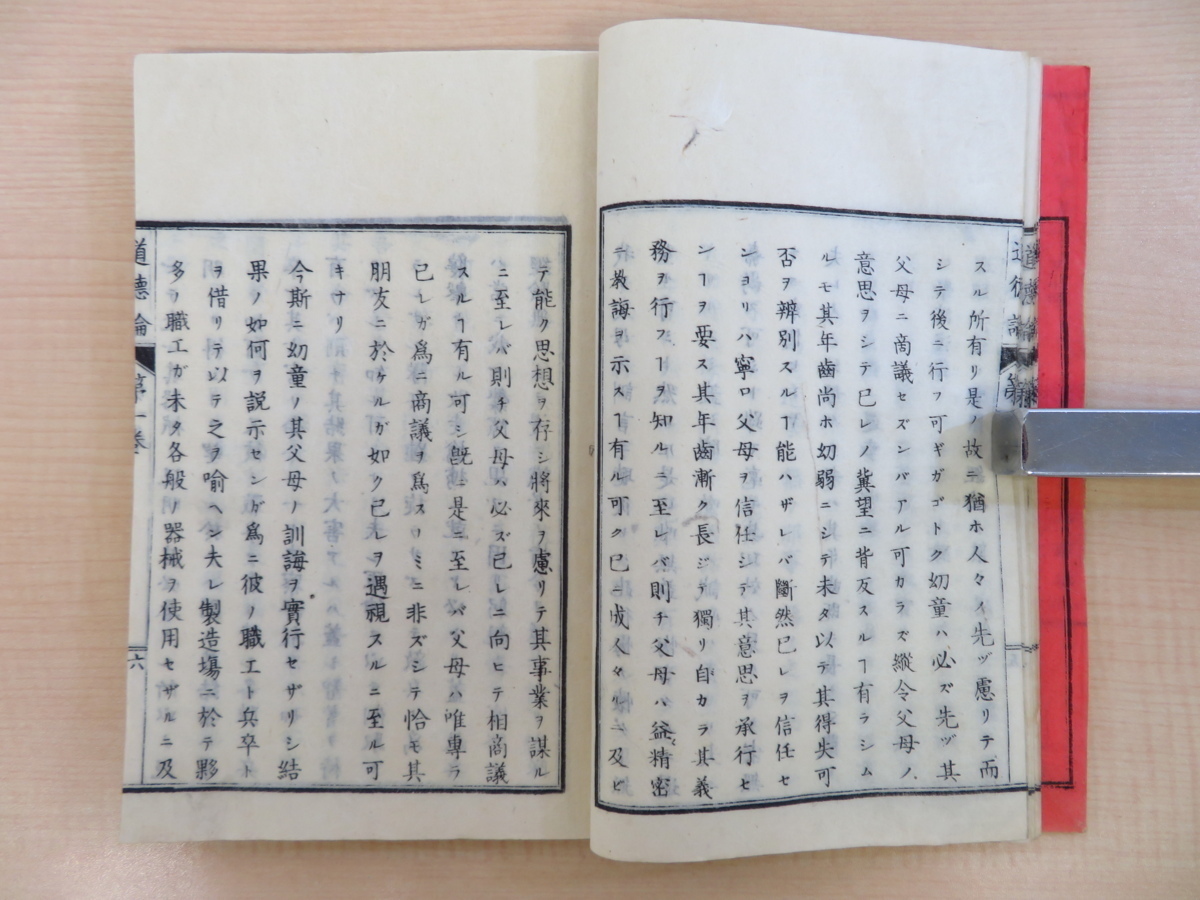 スル所有リ是ノ故ニ猶ホ人々ノ先ヅ慮リテ而
シテ後ニ行フ可キガゴトク幼童ハ必ズ先ヅ其
父母ニ商議セズンバアル可カラズ縱令父母ノ
意思ヲシテ已レノ冀望ニ背反スルヿ有ラシム
ルモ其年齒尚ホ幼弱ニシテ未タ以テ其得失可
否ヲ辨別スルヿ能ハザレバ斷然已レヲ信任セ
ンヨリハ寧ロ父母ヲ信任シテ其意思ヲ承行セ
ンヿヲ要ス其年齒漸ク長ジテ獨リ自カラ其義
務ヲ行フヿヲ知ルニ至レバ則チ父母ハ益精密
ニ教誨ヲ示スヿ有ル可ク已ニ成人々リニ及ヒ
テ能ク思想ヲ存シ將來ヲ慮リテ其事業ヲ謀ル
ニ至レバ則チ父母ハ必ズ已レニ向ヒテ相商議
スルヿ有ル可シ旣ニ是ニ至レバ父母ハ唯專ラ
已レガ爲ニ商議ヲ爲スノミニ非ズシテ恰モ其
朋友ニ於ケルガ如ク已レヲ遇視スルニ至ル可
キナリ
今斯ニ幼童ノ其父母ノ訓誨ヲ實行セザリシ結
果ノ如何ヲ説示センガ爲ニ彼ノ職工ト兵卒ト
ヲ借リテ以テ之ヲ喻ヘン夫レ製造塲ニ於テ夥
多ラ職工ガ未タ各般ノ器械ヲ使用セザルニ及
道德論
第一卷
六